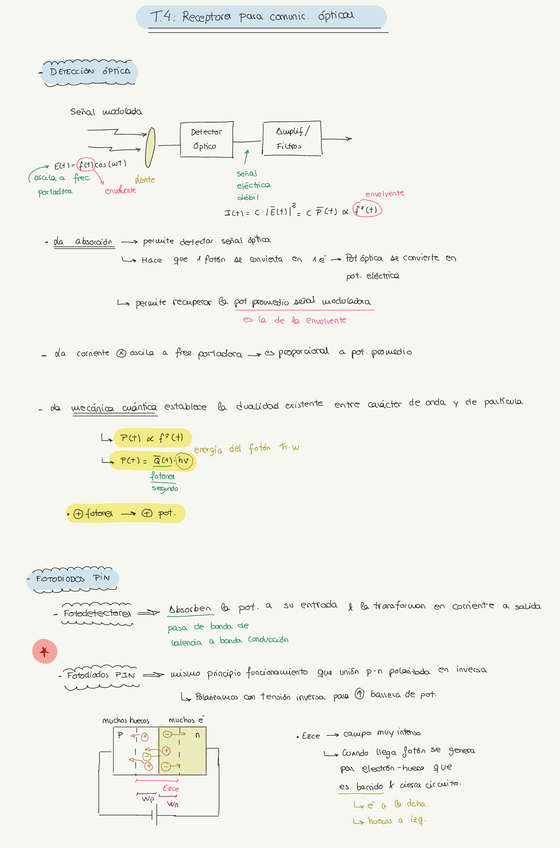 T.4: Receptores para comunic. ópticas
- DETECCIÓN ÓPTICA
Señal modulada
Detector
Óptico
Amplif/
Filtros
E(t) = f(t) cos(wt)
oscila a frec.
portadora
envolvente
lente
señal
eléctrica
débil
envolvente
I(t) = C·|E(t)|² = C P̄(t) ∝ f²(t)
- La absorción → permite detectar señal óptica
↳ Hace que 1 fotón se convierta en 1 e⁻ → Pot óptica se convierte en
pot. eléctrica
↳ permite recuperar la pot. promedio señal moduladora
es la de la envolvente
- La corriente ⊗ oscila a frec. portadora → es proporcional a pot. promedio
- La mecánica cuántica establece la dualidad existente entre carácter de onda y de partícula
↳ P(t) ∝ f²(t)
↳ P(t) = Q(t)·hν
energía del fotón ħ·w
fotones
segundo
· ⊕ fotones → ⊕ pot.
- FOTODIODOS PIN
- Fotodetectores ⇒ Absorben la pot. a su entrada & la transforman en corriente a salida
pasa de banda de
valencia a banda conducción
- Fotodiodos PIN ⇒ mismo principio funcionamiento que unión p-n polarizada en inversa
↳ Polarizamos con tensión inversa para ↑ barrera de pot.
muchos huecos
muchos e⁻
P
n
Ezce
Wp
Wn
· Ezce → campo muy intenso
↳ Cuando llega fotón se genera
par electrón-hueco que
es barrido & cierra circuito.
↳ e⁻ a la dcha.
↳ huecos a izq.